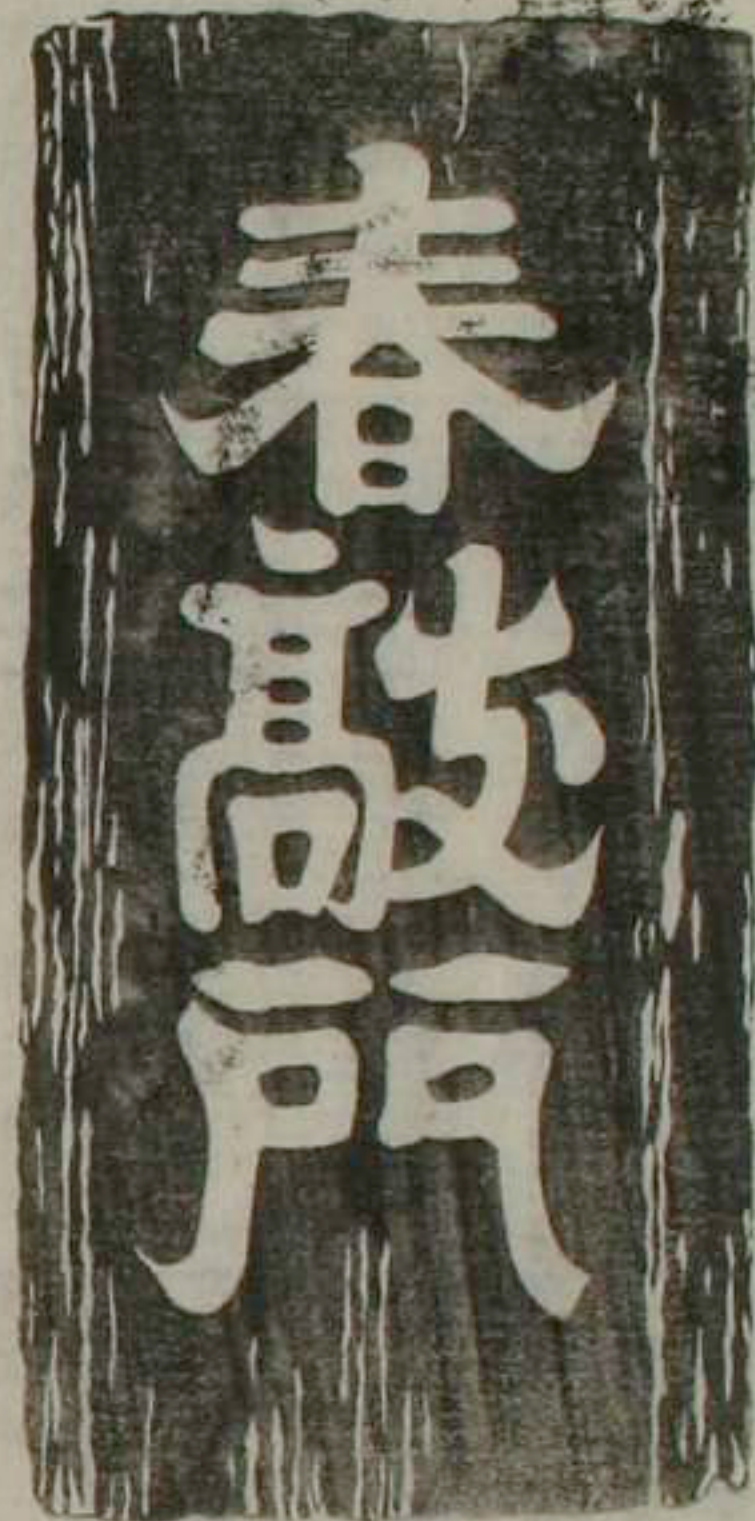 春敲門